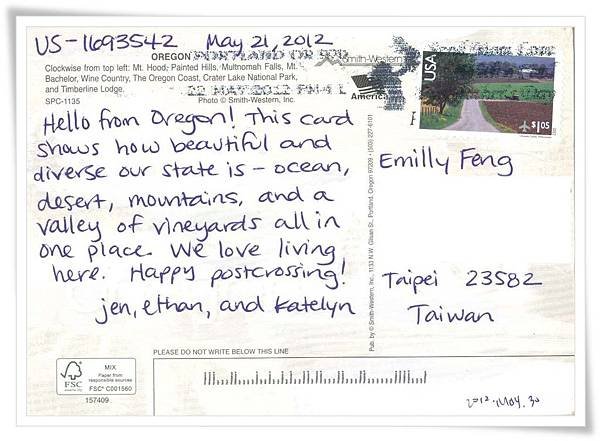 US-1693542 May 21, 2012
PORTLAND OR
OREGON
Smith-Western
Clockwise from top left: Mt. Hood, Painted Hills, Multnomah Falls, Mt.
Bachelor, Wine Country, The Oregon Coast, Crater Lake National Park,
and Timberline Lodge.
SPC-1135
22 MAY 2012 PM 4 L
Photo © Smith-Western, Inc.
America
USA
$1.05
Hello from Oregon! This card
shows how beautiful and
diverse our state is - ocean,
desert, mountains, and a
valley of vineyards all in
one place. We love living
here. Happy postcrossing!
jen, ethan, and katelyn
Pub. by © Smith-Western, Inc., 1133 N.W. Glisan St., Portland, Oregon 97209 • (503) 227-6101
Emilly Feng
Taipei 23582
Taiwan
PLEASE DO NOT WRITE BELOW THIS LINE
FSC
MIX
Paper from
responsible sources
FSC® C001560
157409
2012.May.30